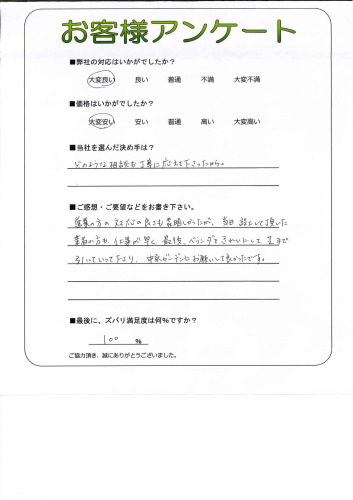 お客様アンケート
■弊社の対応はいかがでしたか？
大変良い 良い 普通 不満 大変不満
■価格はいかがでしたか？
大変安い 安い 普通 高い 大変高い
■当社を選んだ決め手は？
どのような相談も丁寧に応えて下さったから。
■ご感想・ご要望などをお書き下さい。
営業の方の対応の良さも素晴しかったが、当日 施工して頂いた
業者の方も、仕事が早く、最後、ベランダをきれいにして
引いていって下さり、お願いして良かったです。
■最後に、ズバリ満足度は何%ですか？
100 %
ご協力頂き、誠にありがとうございました。